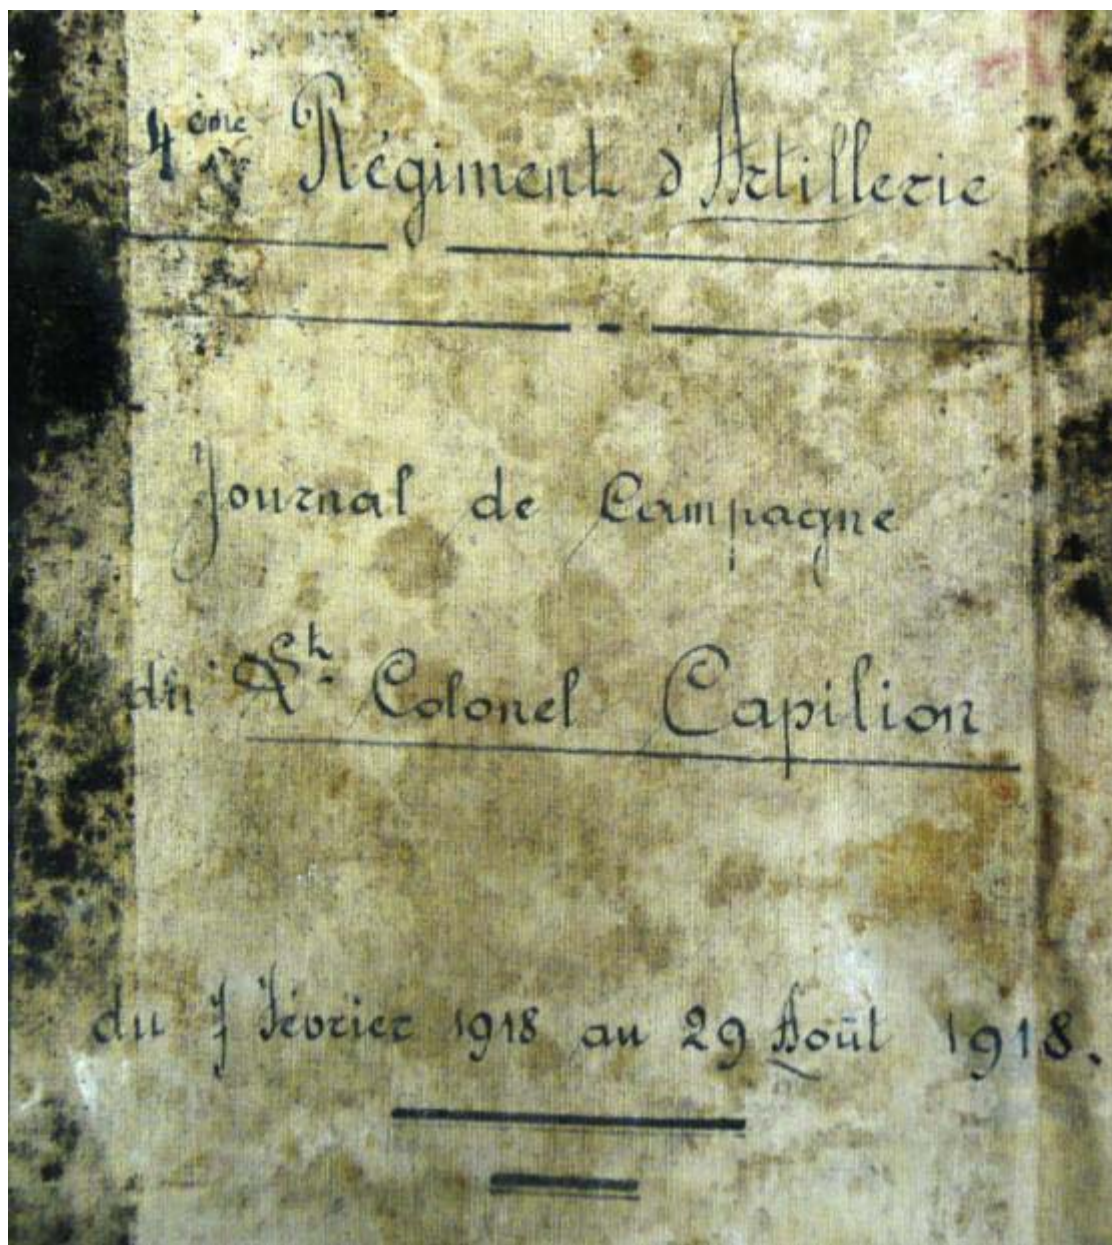 4ème Régiment d'Artillerie
Journal de Campagne
du Lt Colonel Capilion
du 7 Février 1918 au 29 Août 1918.